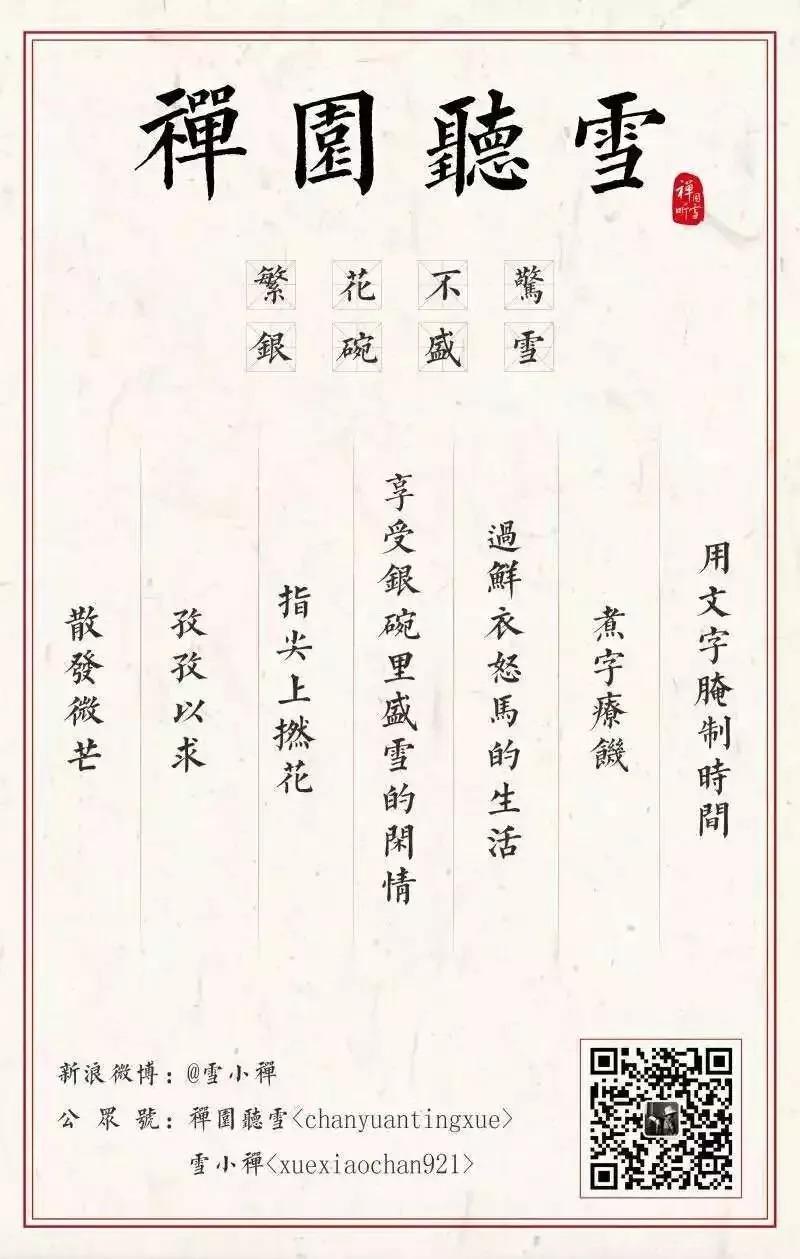 禪園聽雪
禅园听雪
繁花不驚
銀碗盛雪
用文字腌制時間
煮字療饑
過鮮衣怒馬的生活
享受銀碗里盛雪的閑情
指尖上撚花
孜孜以求
散發微芒
新浪微博：@雪小禪
公眾號：禪園聽雪<chanyuantingxue>
雪小禪<xuexiaochan921>